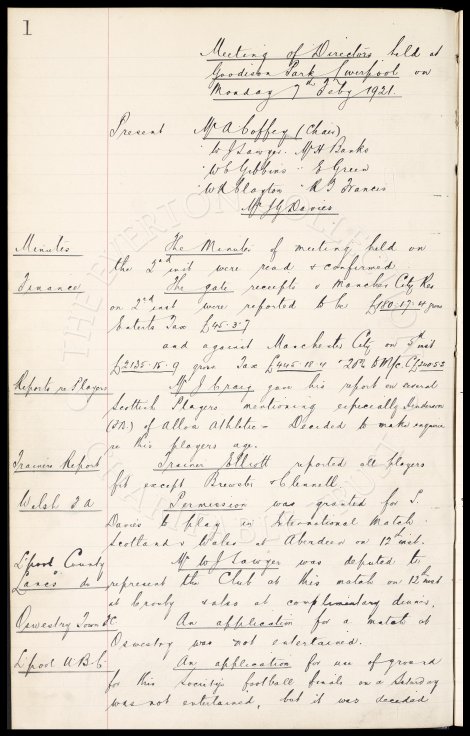 1
Meeting of Directors held at
Goodison Park Liverpool on
Monday 7th Feby 1921.
Present Mr A Coffey (Chair)
" W J Sawyer. Mr H Banks
" W C Gibbins " E Green
" W R Clayton " R J Francis
Mr J G Davies
Minutes The Minutes of meeting held on
the 2nd inst were read & confirmed
Finance The gate receipts v Manches City Res
on 2nd inst were reported to be £180.17.4 gross
Enterts Tax £45.3.7
and against Manchester City on 5th inst
£2135.15.9 gross Tax £445.18.4 20% to M/c. C
Reports re Players Mr J Craig gave his report on several
Scottish Players mentioning especially
of Alloa Athletic - Decided to make enquiries
re this players age.
Trainers Report Trainer Elliott reported all players
fit except Brewster & Clennell.
Welsh F A Permission was granted for S.
Davies to play in International Match
Scotland v Wales at Aberdeen on 12th inst.
L'pool County Mr W J Sawyer was deputed to
Lancs do represent the Club at this match on 12th inst
at Crosby & also at complimentary dinner.
Oswestry Town FC An application for a match at
Oswestry was not entertained.
L'pool U B C An application for use of ground
for this Society's football finals on a Saturday
was not entertained, but it was decided
THE EVERTON COLLECTION
CHARITABLE TRUST